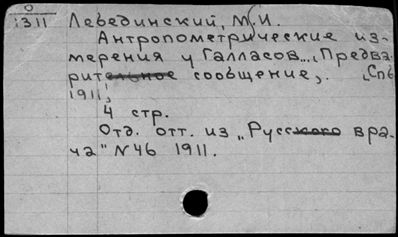 О
1311 Лебединский, М. И.
Антропометрические из-
мерения у Галласов... Предва-
рительное сообщение,. СПб
1911,
4 стр.
Отд. отт. из „Русского вра-
ча" N46 1911.